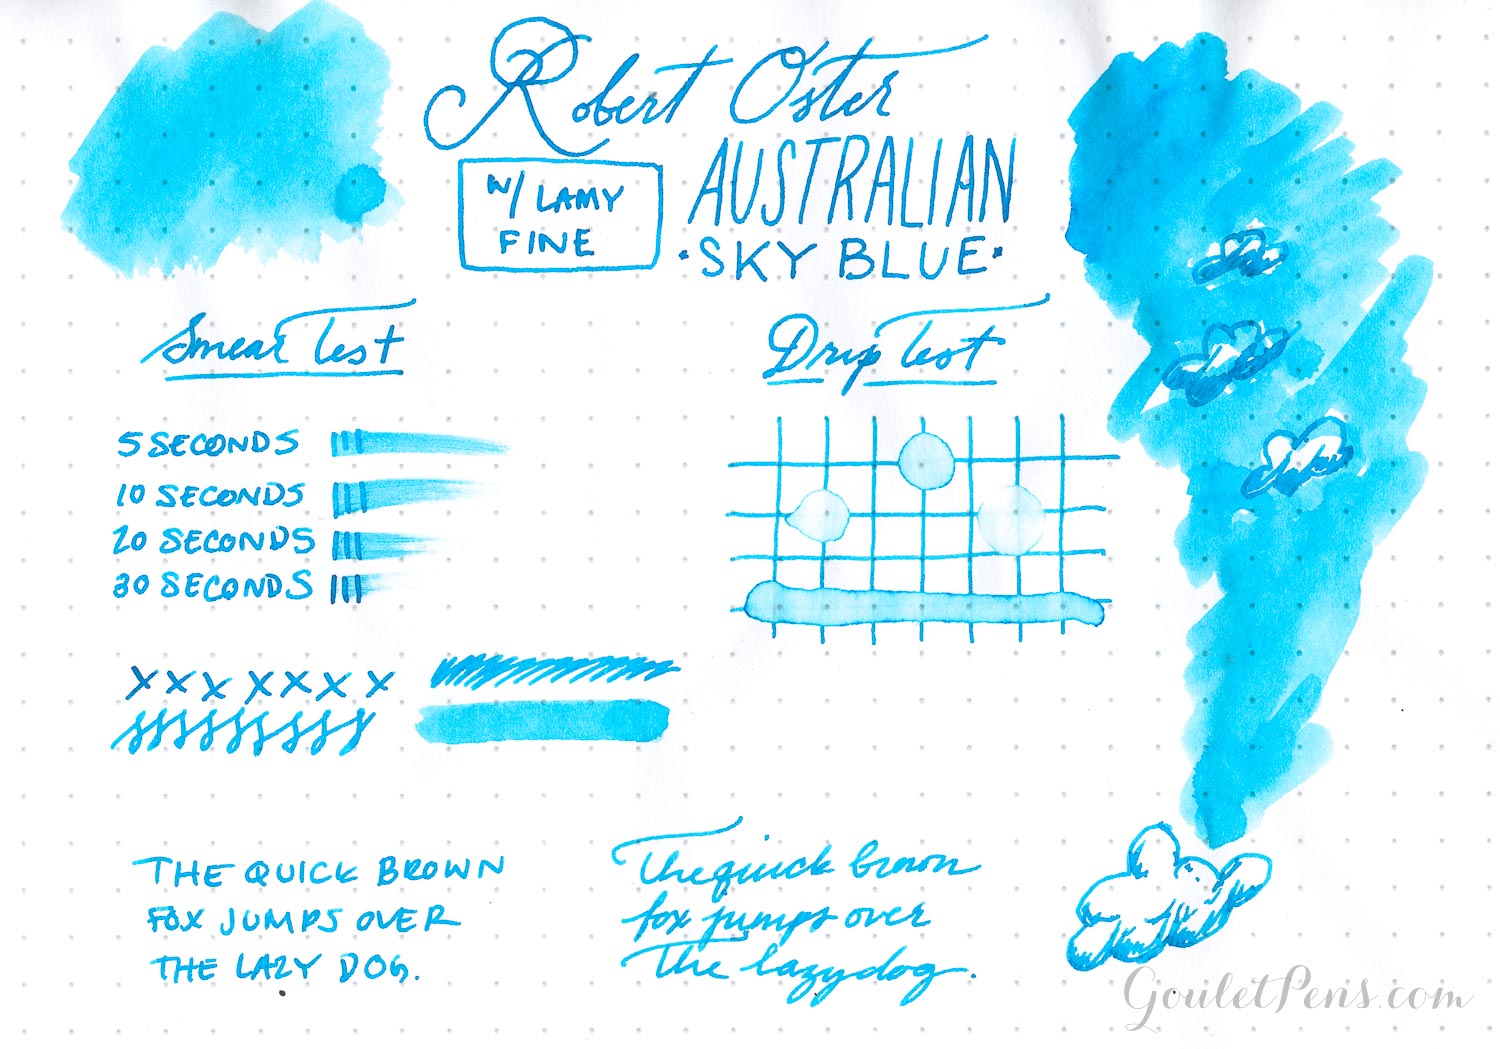 Robert Oster
W/ LAMY
FINE
AUSTRALIAN
·SKY BLUE·
Smear Test
5 SECONDS
10 SECONDS
20 SECONDS
30 SECONDS
x x x x x x x
Drip Test
THE QUICK BROWN
FOX JUMPS OVER
THE LAZY DOG.
The quick brown
fox jumps over
The lazy dog.
GouletPens.com